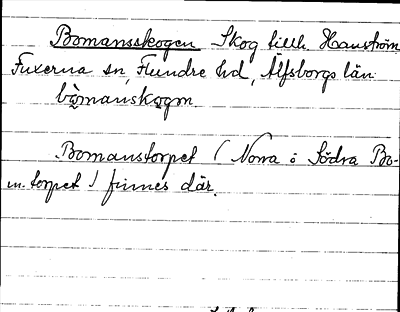 Bomansskogen Skog tillh. Hanström
Fuxerna sn, Flundre hd, Älfsborgs län
bòmanskogen.
Bomanstorpet (Norra o Södra Bo-
m. torpet) finnes där.